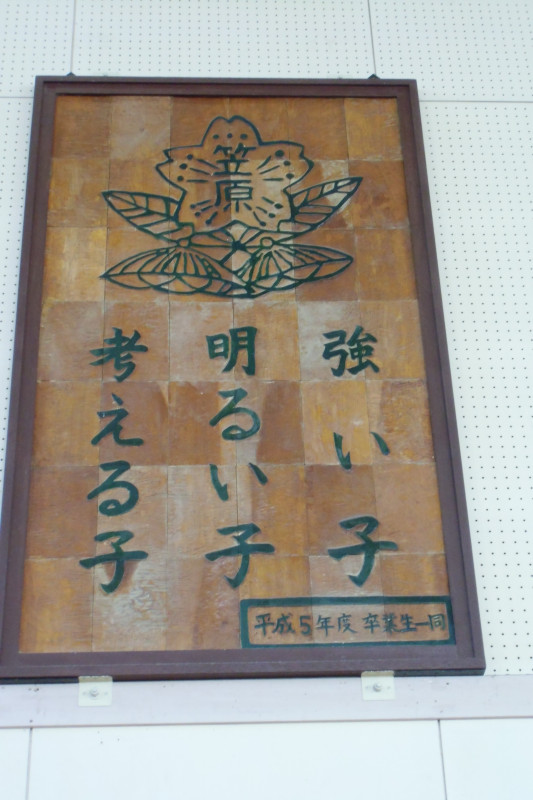 笠原
強い子
明るい子
考える子
平成5年度 卒業生一同